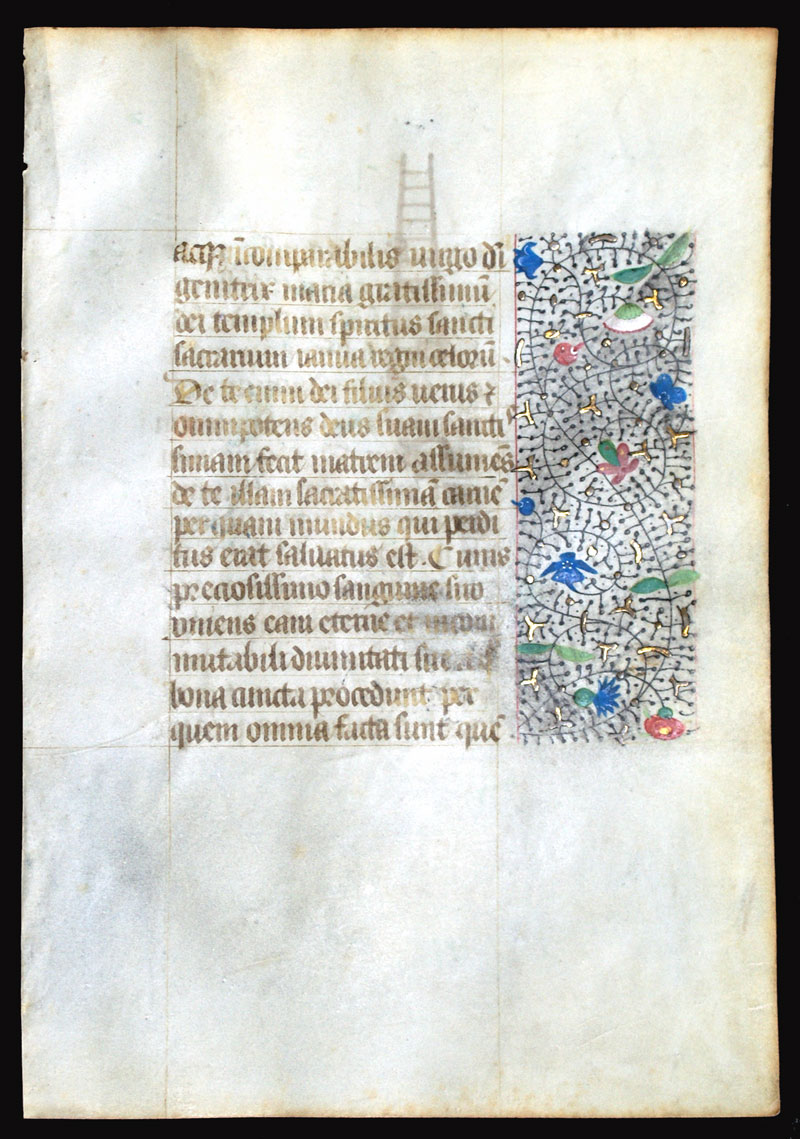 atqꝫ īcomparabilis uirgo dī
genitrix maria gratissimū
dei templum spiritus sancti
sacrarium ianua regni celorū
De te enim dei filius uerus ⁊
omnipotens deus suam sancti
simam fecit matrem assumēs
de te illam sacratissimā carnē
per quam mundus qui perdi
tus erat saluatus est. Cuius
preciosissimo sanguine suo
vniens eam eterne et incom
mutabili diuinitati sue
bona cuncta procedunt per
quem omnia facta sunt quē